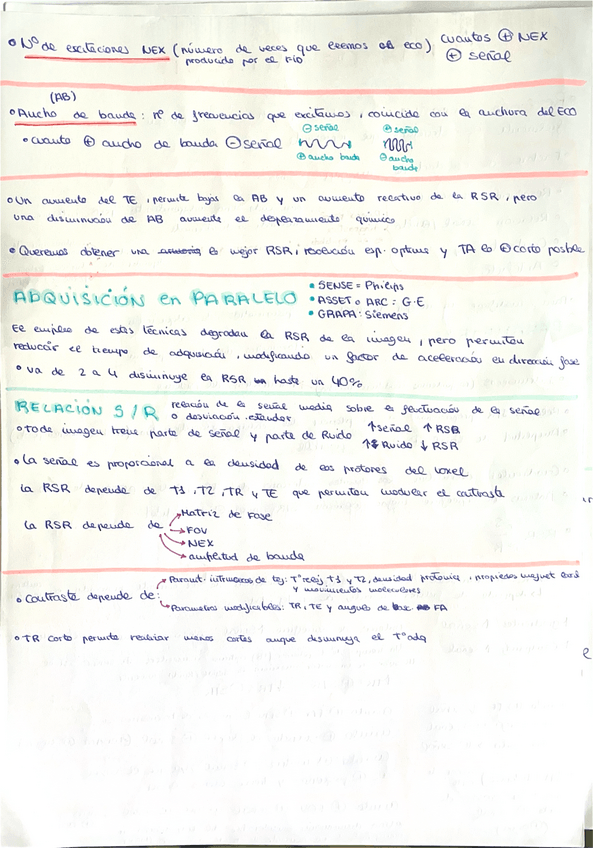 • Nº de excitaciones NEX (número de veces que leemos el eco) cuantos ⊕ NEX
producido por el FID ⊕ señal
(AB)
• Ancho de banda: nº de frecuencias que excitamos, coincide con la anchura del ECO
• cuanto ⊕ ancho de banda ⊖ señal
⊖ señal ⊕ señal
⊕ ancho banda ⊖ ancho banda
• Un aumento del TE, permite bajar la AB y un aumento relativo de la RSR, pero
una disminución de AB aumenta el desplazamiento químico
• Queremos obtener una mejor RSR, resolución esp. optima y TA lo ⊕ corto posible
ADQUISICIÓN en PARALELO
• SENSE = Philips
• ASSET o ARC : G.E
• GRAPA: Siemens
El empleo de estas técnicas degradan la RSR de la imagen, pero permiten
reducir el tiempo de adquisición, modificando un factor de aceleración en dirección fase
• va de 2 a 4 disminuye la RSR hasta un 40%
RELACIÓN S/R relación de la señal media sobre la fluctuación de la señal
o desviación estandar
• toda imagen tiene parte de señal y parte de Ruido ↑ señal ↑ RSR
↑ Ruido ↓ RSR
• La señal es proporcional a la densidad de los protones del voxel
La RSR depende de T1, T2, TR y TE que permiten modular el contraste
La RSR depende de
→ Matriz de Fase
→ FOV
→ NEX
→ amplitud de banda
• Contraste depende de:
→ Paramt. intrinsecos de tej: Tº relaj T1 y T2, densidad protonica, propiedes magnet
y movimientos moleculares
→ Parametros modificables: TR, TE y angulo de FA
• TR corto permite realizar menos cortes aunque disminuya el Tº adq